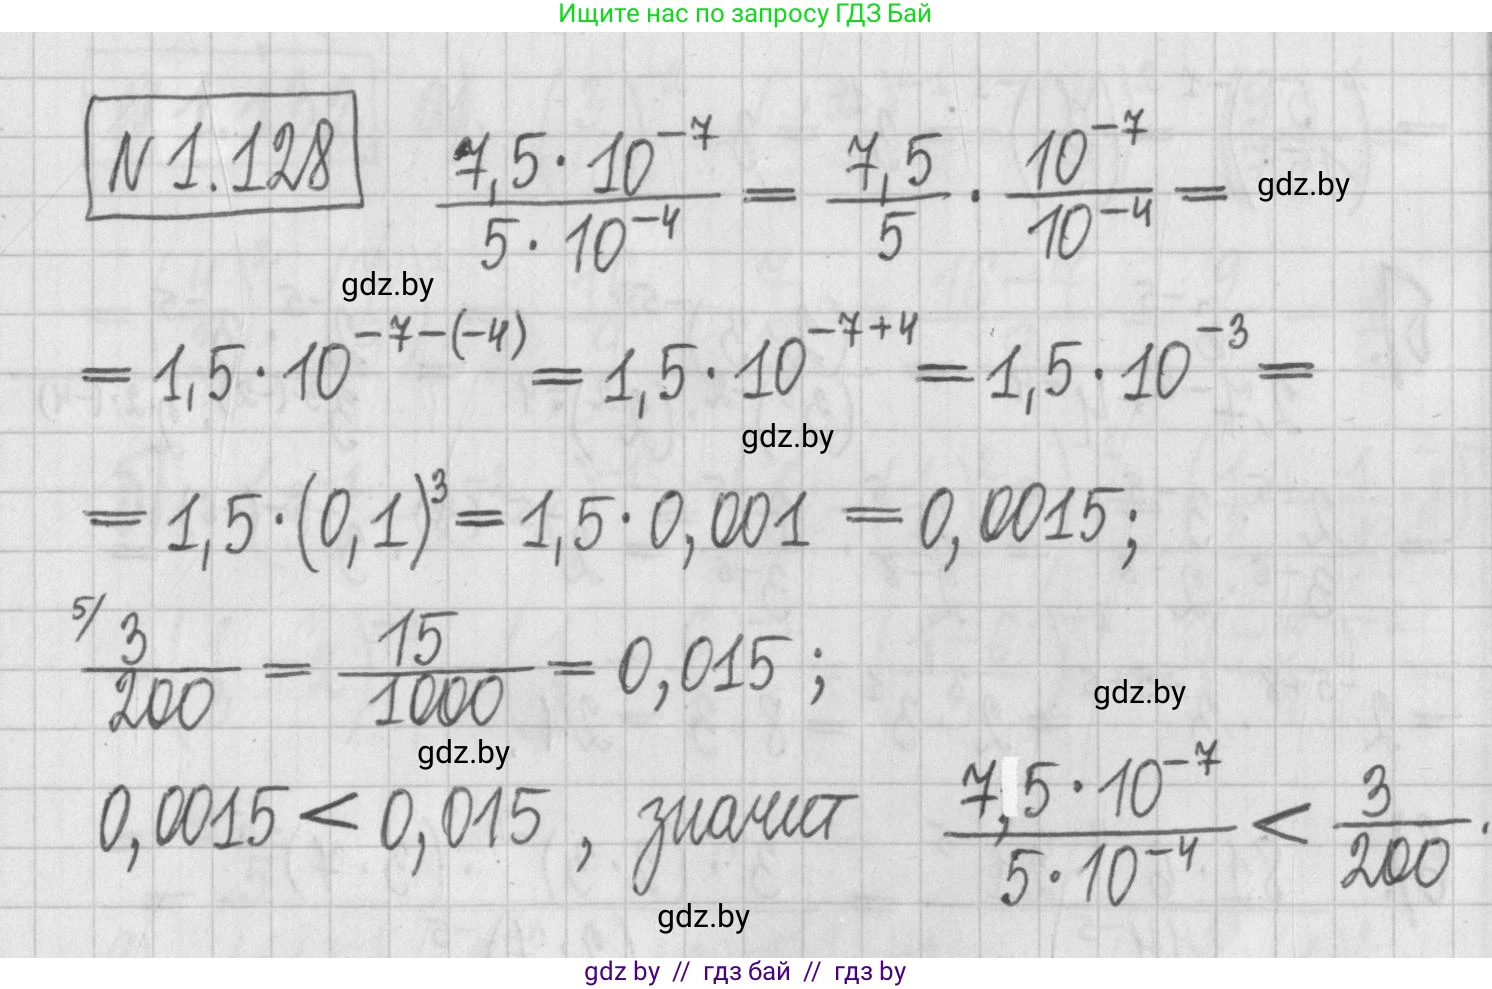 Ищите нас по запросу ГДЗ Бай
N 1.128 7,5·10⁻⁷/5·10⁻⁴ = 7,5/5 · 10⁻⁷/10⁻⁴ = gdz.by
gdz.by
= 1,5·10⁻⁷⁻⁽⁻⁴⁾ = 1,5·10⁻⁷⁺⁴ = 1,5·10⁻³ =
gdz.by
= 1,5·(0,1)³ = 1,5·0,001 = 0,0015;
⁵/ 3/200 = 15/1000 = 0,015;
gdz.by
gdz.by
0,0015 < 0,015, значит 7,5·10⁻⁷/5·10⁻⁴ < 3/200.
gdz.by
gdz by // гдз бай // гдз by